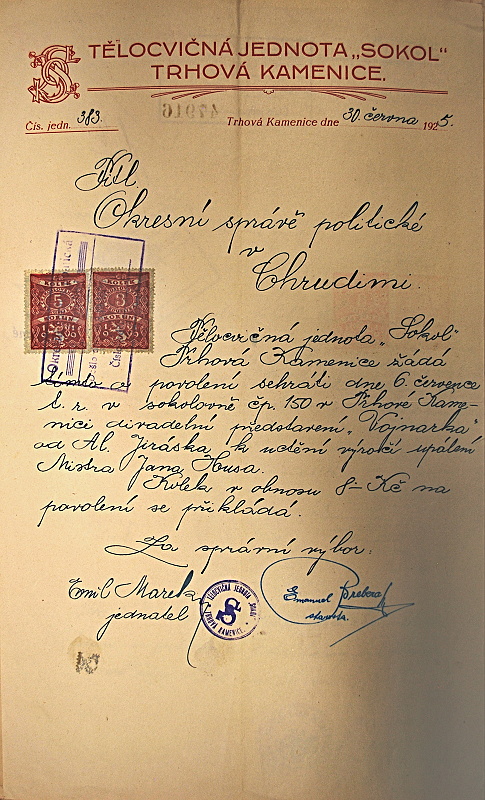 TĚLOCVIČNÁ JEDNOTA „SOKOL"
TRHOVÁ KAMENICE.
47916
Čís. jedn. 383.
Trhová Kamenice dne 30. června 1925.
Titl.
Okresní správě politické
v
Chrudimi.
KOLEK KOLEK
5 3
KORUN KORUNY
Tělocvičná jednota „Sokol"
Trhová Kamenice žádá
tímto o povolení sehráti dne 6. července
t. r. v sokolovně čp. 150 v Trhové Kame-
nici divadelní představení „Vojnarka"
od Al. Jiráska k uctění výročí upálení
Mistra Jana Husa.
Kolek v obnosu 8- Kč na
povolení se přikládá.
Za správní výbor:
Emil Marek
jednatel
TĚLOCVIČNÁ JEDNOTA „SOKOL"
TRHOVÁ KAMENICE
Emanuel
starosta.